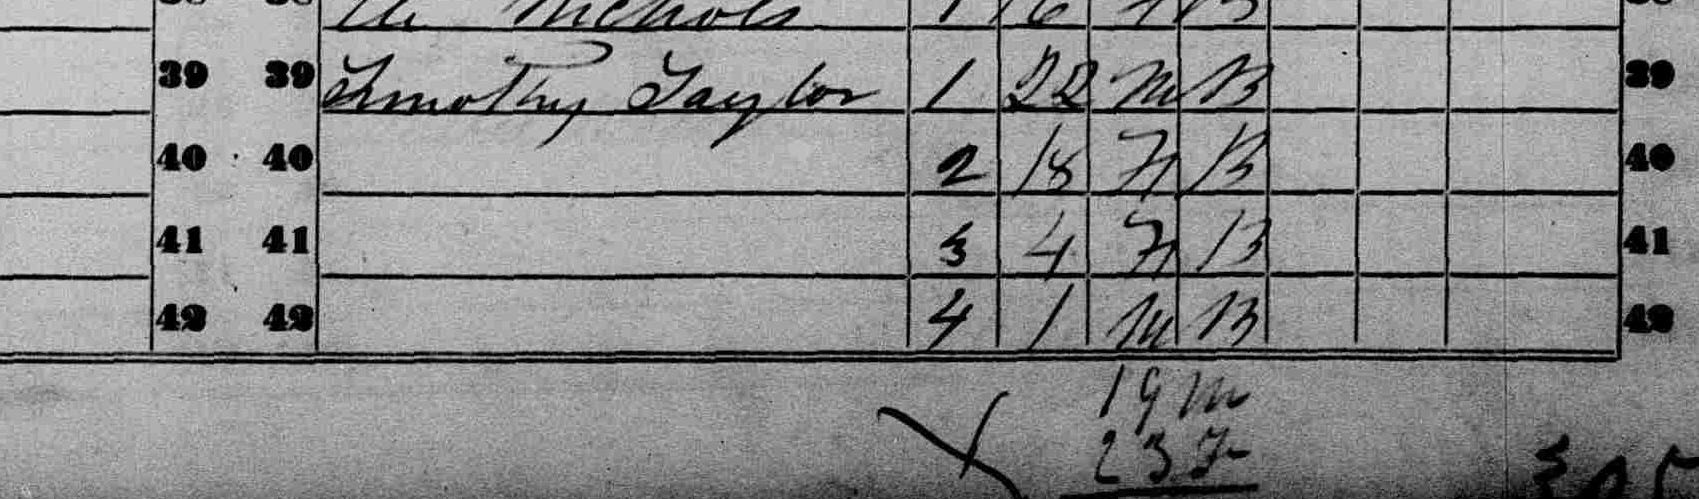 Nichols 1 16 F B
39 39 Timothy Taylor 1 22 M B 39
40 40 2 18 F B 40
41 41 3 4 F B 41
42 42 4 1 M B 42
19 M
23 F